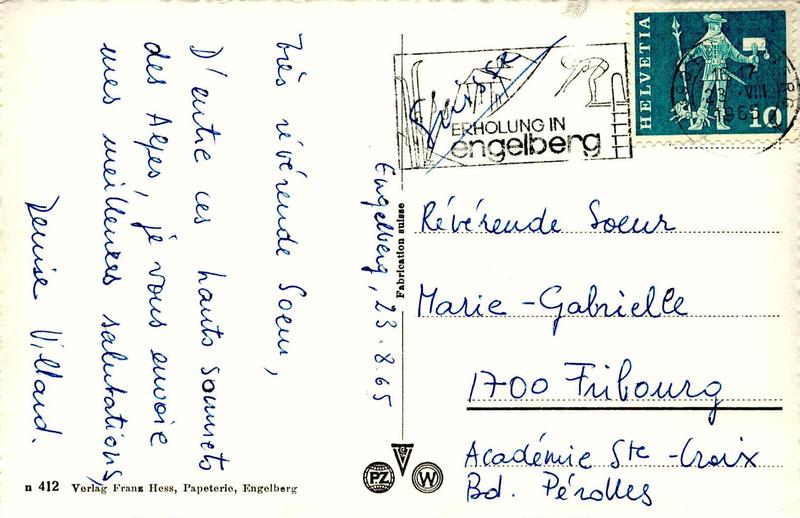 Très révérende Soeur,
D'entre ces hauts sommets
des Alpes, je vous envoie
mes meilleures salutations,
Denise Villard.
Engelberg, 23.8.65
Fabrication suisse
Suisse
ERHOLUNG IN
engelberg
HELVETIA
10
23 VIII
1965
Révérende Soeur
Marie-Gabrielle
1700 Fribourg
Académie Ste-Croix
Bd. Pérolles
PZ
W
n 412 Verlag Franz Hess, Papeterie, Engelberg